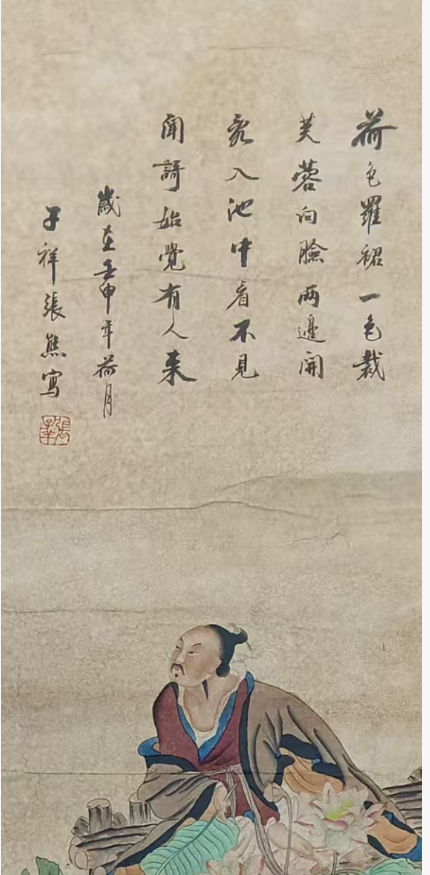 荷色羅裙一色裁
芙蓉向臉兩邊開
亂入池中看不見
聞謌始覺有人来
歲在壬申年荷月
子祥張熊寫